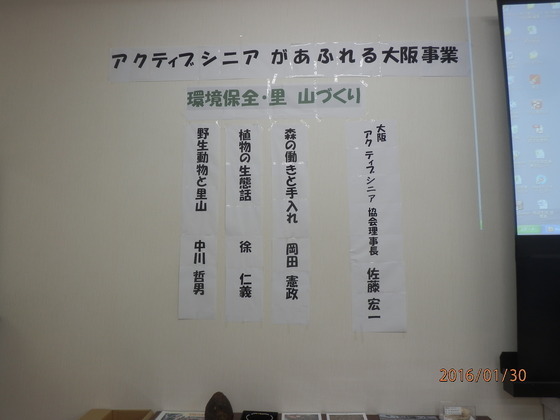 アクティブシニアがあふれる大阪事業
環境保全・里山づくり
大阪
アクティブシニア協会理事長 佐藤 宏一
森の働きと手入れ 岡田 憲政
植物の生態話 徐 仁義
野生動物と里山 中川 哲男
2016/01/30